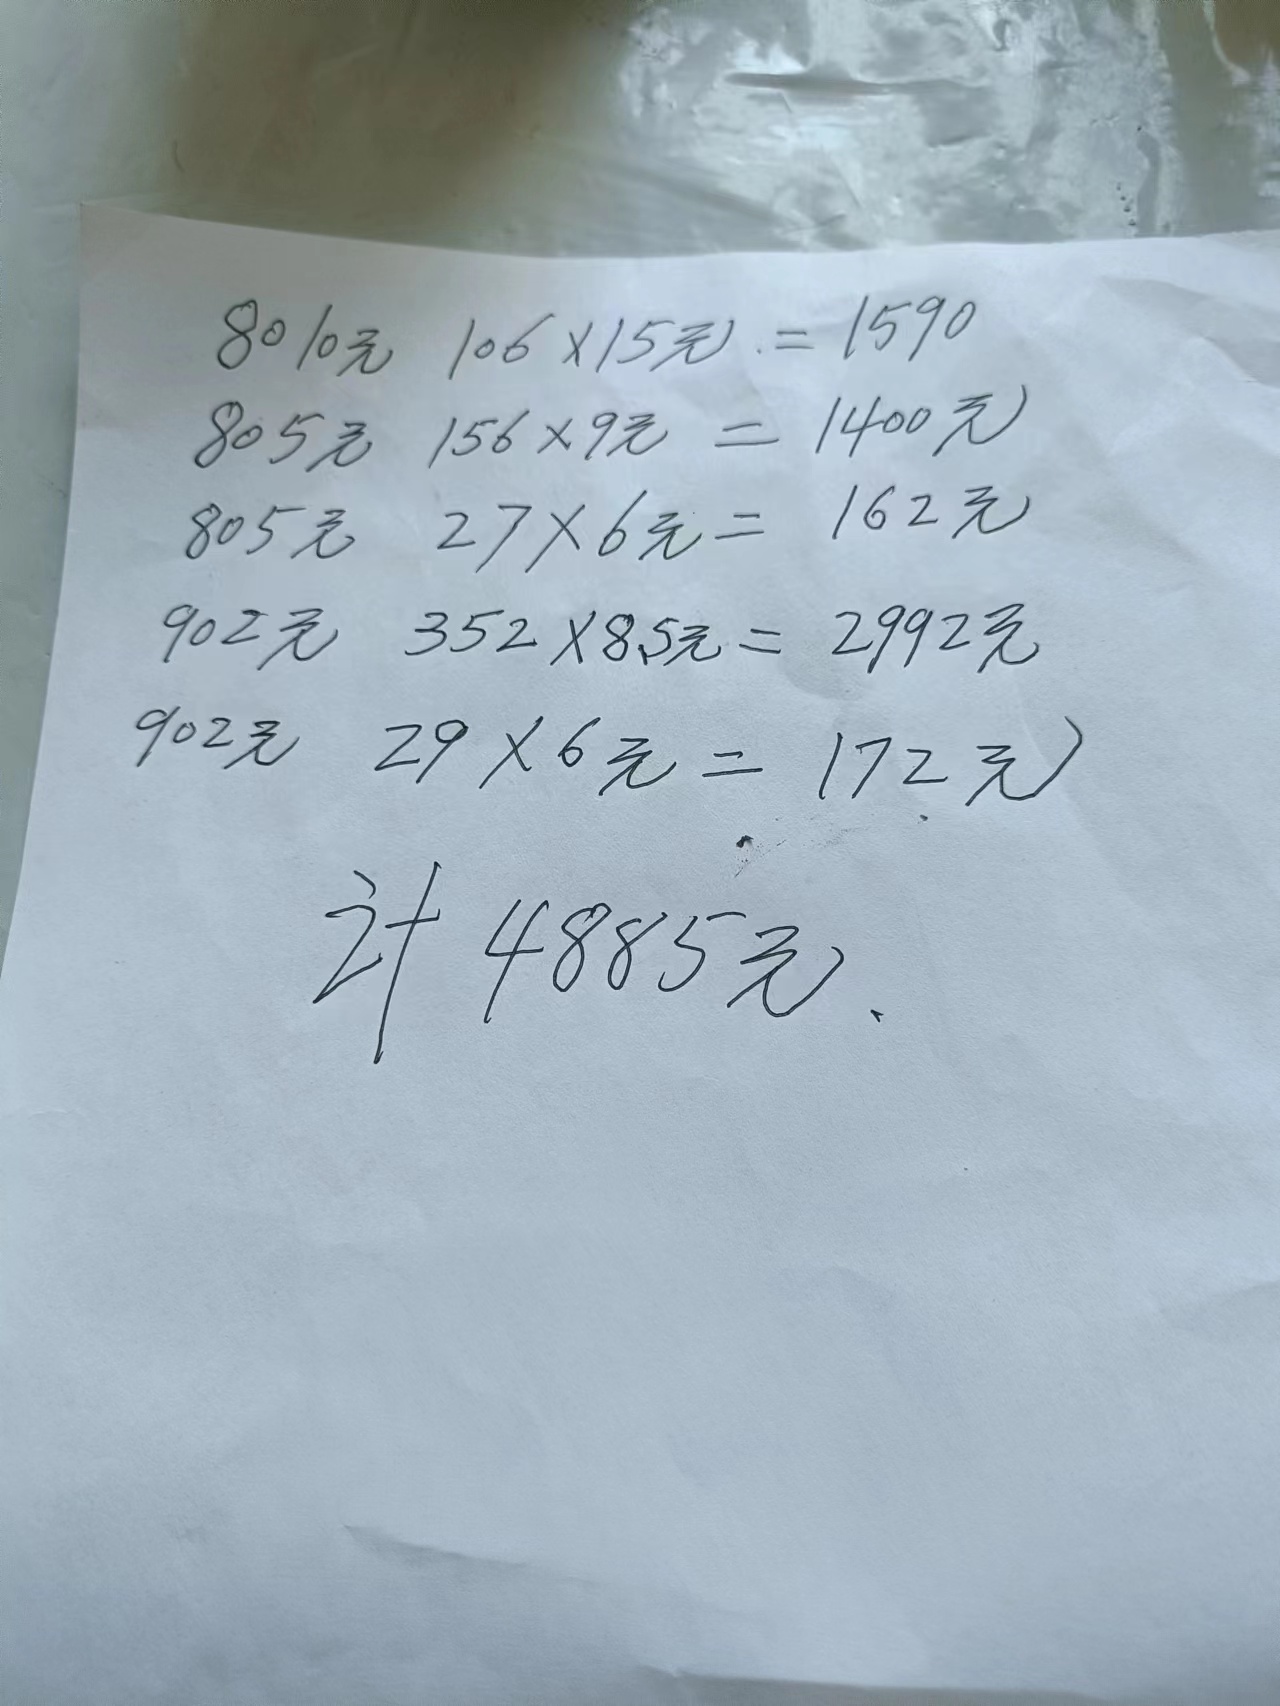 8010元 106×15元.=1590
805元 156×9元=1400元
805元 27×6元=162元
902元 352×8.5元=2992元
902元 29×6元=172元
计4885元.